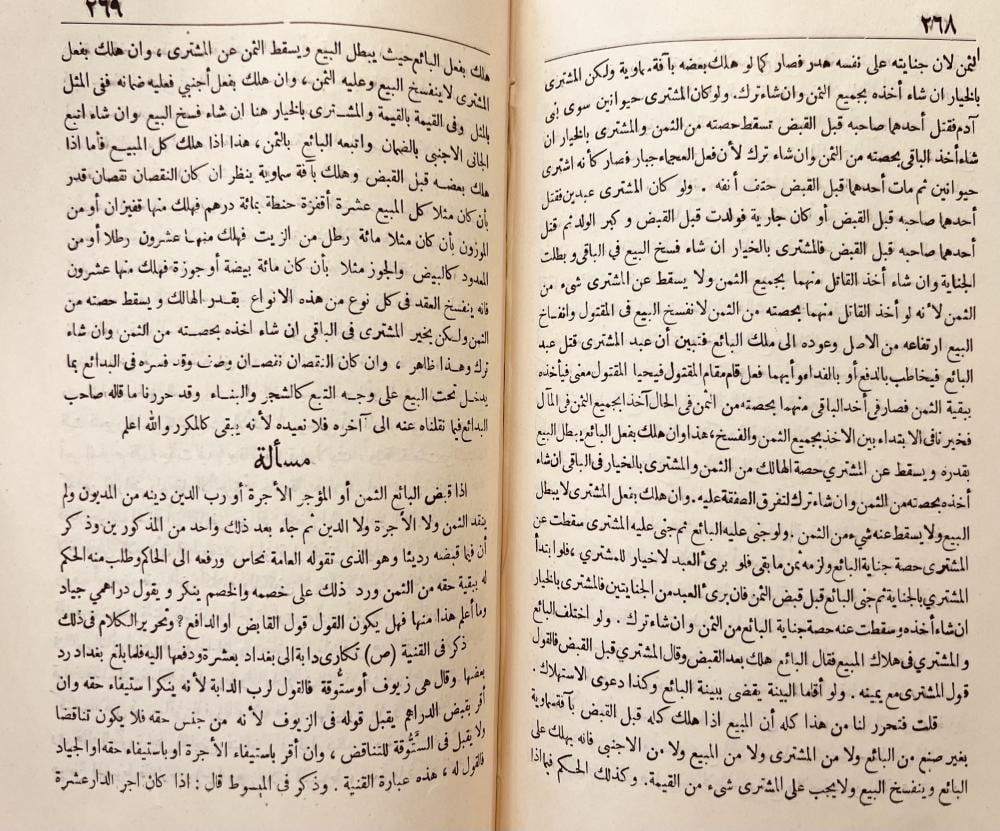 ٢٦٨
الثمن لان جنايته على نفسه هدر فصار كما لو هلك بعضه بآفة سماوية ولكن المشترى
بالخيار ان شاء أخذه بجميع الثمن وان شاء ترك . ولو كان المشترى حيوانين سوى بنى
آدم فقتل أحدهما صاحبه قبل القبض تسقط حصته من الثمن والمشترى بالخيار ان
شاء أخذ الباقى بحصته من الثمن وان شاء ترك لأن فعل العجماء جبار فصار كأنه اشترى
حيوانين ثم مات أحدهما قبل القبض حتف أنفه . ولو كان المشترى عبدين فقتل
أحدهما صاحبه قبل القبض أو كان جارية فولدت قبل القبض و كبر الولد ثم قتل
أحدهما صاحبه قبل القبض فالمشترى بالخيار ان شاء فسخ البيع فى الباقى و بطلت
الجناية وان شاء أخذ القاتل منهما بجميع الثمن ولا يسقط عن المشترى شىء من
الثمن لأنه لو أخذ القاتل منهما بحصته من الثمن لانفسخ البيع فى المقتول وانفساخ
البيع ارتفاعه من الاصل وعوده الى ملك البائع فتبين أن عبد المشترى قتل عبد
البائع فيخاطب بالدفع أو بالفداء وأيهما فعل قام مقام المقتول فيحيا المقتول معنى فيأخذه
ببقية الثمن فصار فى أخذ الباقى منهما بحصته من الثمن فى الحال آخذا بجميع الثمن فى المآل
فخير نافى الابتداء بين الاخذ بجميع الثمن والفسخ، هذا وان هلك بفعل البائع يبطل البيع
بقدره ويسقط عن المشتري حصة الهالك من الثمن والمشترى بالخيار فى الباقى ان شاء
أخذه بحصته من الثمن وان شاء ترك لتفرق الصفقة عليه . وان هلك بفعل المشترى لا يبطل
البيع ولا يسقط عنه شىء من الثمن . ولو جنى عليه البائع ثم جنى عليه المشترى سقطت عن
المشترى حصة جناية البائع ولزمه ثمن ما بقى فلو برىء العبد لا خيار للمشترى ، فلو ابتدأ
المشتري بالجناية ثم جنى البائع قبل قبض الثمن فان برىء العبد من الجنايتين فالمشترى بالخيار
ان شاء أخذه وسقطت عنه حصة جناية البائع من الثمن وان شاء ترك . ولو اختلف البائع
والمشترى فى هلاك المبيع فقال البائع هلك بعد القبض وقال المشتري قبل القبض فالقول
قول المشترى مع يمينه . ولو أقاما البينة يقضى ببينة البائع وكذا دعوى الاستهلاك .
قلت فتحرر لنا من هذا كله أن المبيع اذا هلك كله قبل القبض بآفة سماوية
بغير صنع من البائع ولا من المشترى ولا من المبيع ولا من الاجنبى فانه يهلك على
البائع و ينفسخ البيع ولا يجب على المشترى شىء من القيمة . وكذلك الحكم فيما اذا
٢٦٩
هلك بفعل البائع حيث يبطل البيع ويسقط الثمن عن المشترى ، وان هلك بفعل
المشترى لا ينفسخ البيع وعليه الثمن ، وان هلك بفعل أجنبي فعليه ضمانه ففى المثل
بالمثل وفى القيمة بالقيمة والمشترى بالخيار هنا ان شاء فسخ البيع وان شاء اتبع
الجانى الاجنبى بالضمان واتبعه البائع بالثمن، هذا اذا هلك كل المبيع فأما اذا
هلك بعضه قبل القبض وهلك بآفة سماوية ينظر ان كان النقصان نقصان قدر
بأن كان مثلا كل المبيع عشرة أقفزة حنطة بمائة درهم فهلك منها قفيزان أو من
الموزون بأن كان مثلا مائة رطل من الزيت فهلك منها عشرون رطلا أو من
المعدود كالبيض والجوز مثلا بأن كان مائة بيضة أو جوزة فهلك منها عشرون
فانه ينفسخ العقد فى كل نوع من هذه الانواع بقدر الهالك و يسقط حصته من
الثمن ولكن يخير المشترى فى الباقى ان شاء اخذه بحصته من الثمن وان شاء
ترك وهذا ظاهر ، وان كان النقصان نقصان وصف وقد فسره فى البدائع بما
يدخل تحت البيع على وجه التبع كالشجر والبناء وقد حررنا ما قاله صاحب
البدائع فيما نقلناه عنه الى آخره فلا نعيده لأنه يبقى كالمكرر والله اعلم
مسألة
اذا قبض البائع الثمن أو المؤجر الأجرة أو رب الدين دينه من المديون ولم
ينقد الثمن ولا الأجرة ولا الدين ثم جاء بعد ذلك واحد من المذكورين وذكر
أن فيما قبضه رديئا وهو الذى تقوله العامة نحاس ورفعه الى الحاكم وطلب منه الحكم
له ببقية حقه من الثمن ورد ذلك على خصمه والخصم ينكر و يقول دراهمي جياد
وما أعلم هذا منها فهل يكون القول قول القابض او الدافع ? وتحرير الكلام فى ذلك
ذكر فى القنية (ص) تكارى دابة الى بغداد بعشرة ودفعها اليه فلما بلغ بغداد رد
بعضها وقال هى زيوف أوستُّوقة فالقول لرب الدابة لأنه ينكر استيفاء حقه وان
أقر بقبض الدراهم يقبل قوله فى الزيوف لأنه من جنس حقه فلا يكون تناقضا
ولا يقبل فى الستُّوقة للتناقض ، وان أقر باستيفاء الأجرة او باستيفاء حقه او الجياد
فالقول له ، هذه عبارة القنية . وذكر فى المبسوط قال : اذا كان اجر الدار عشرة